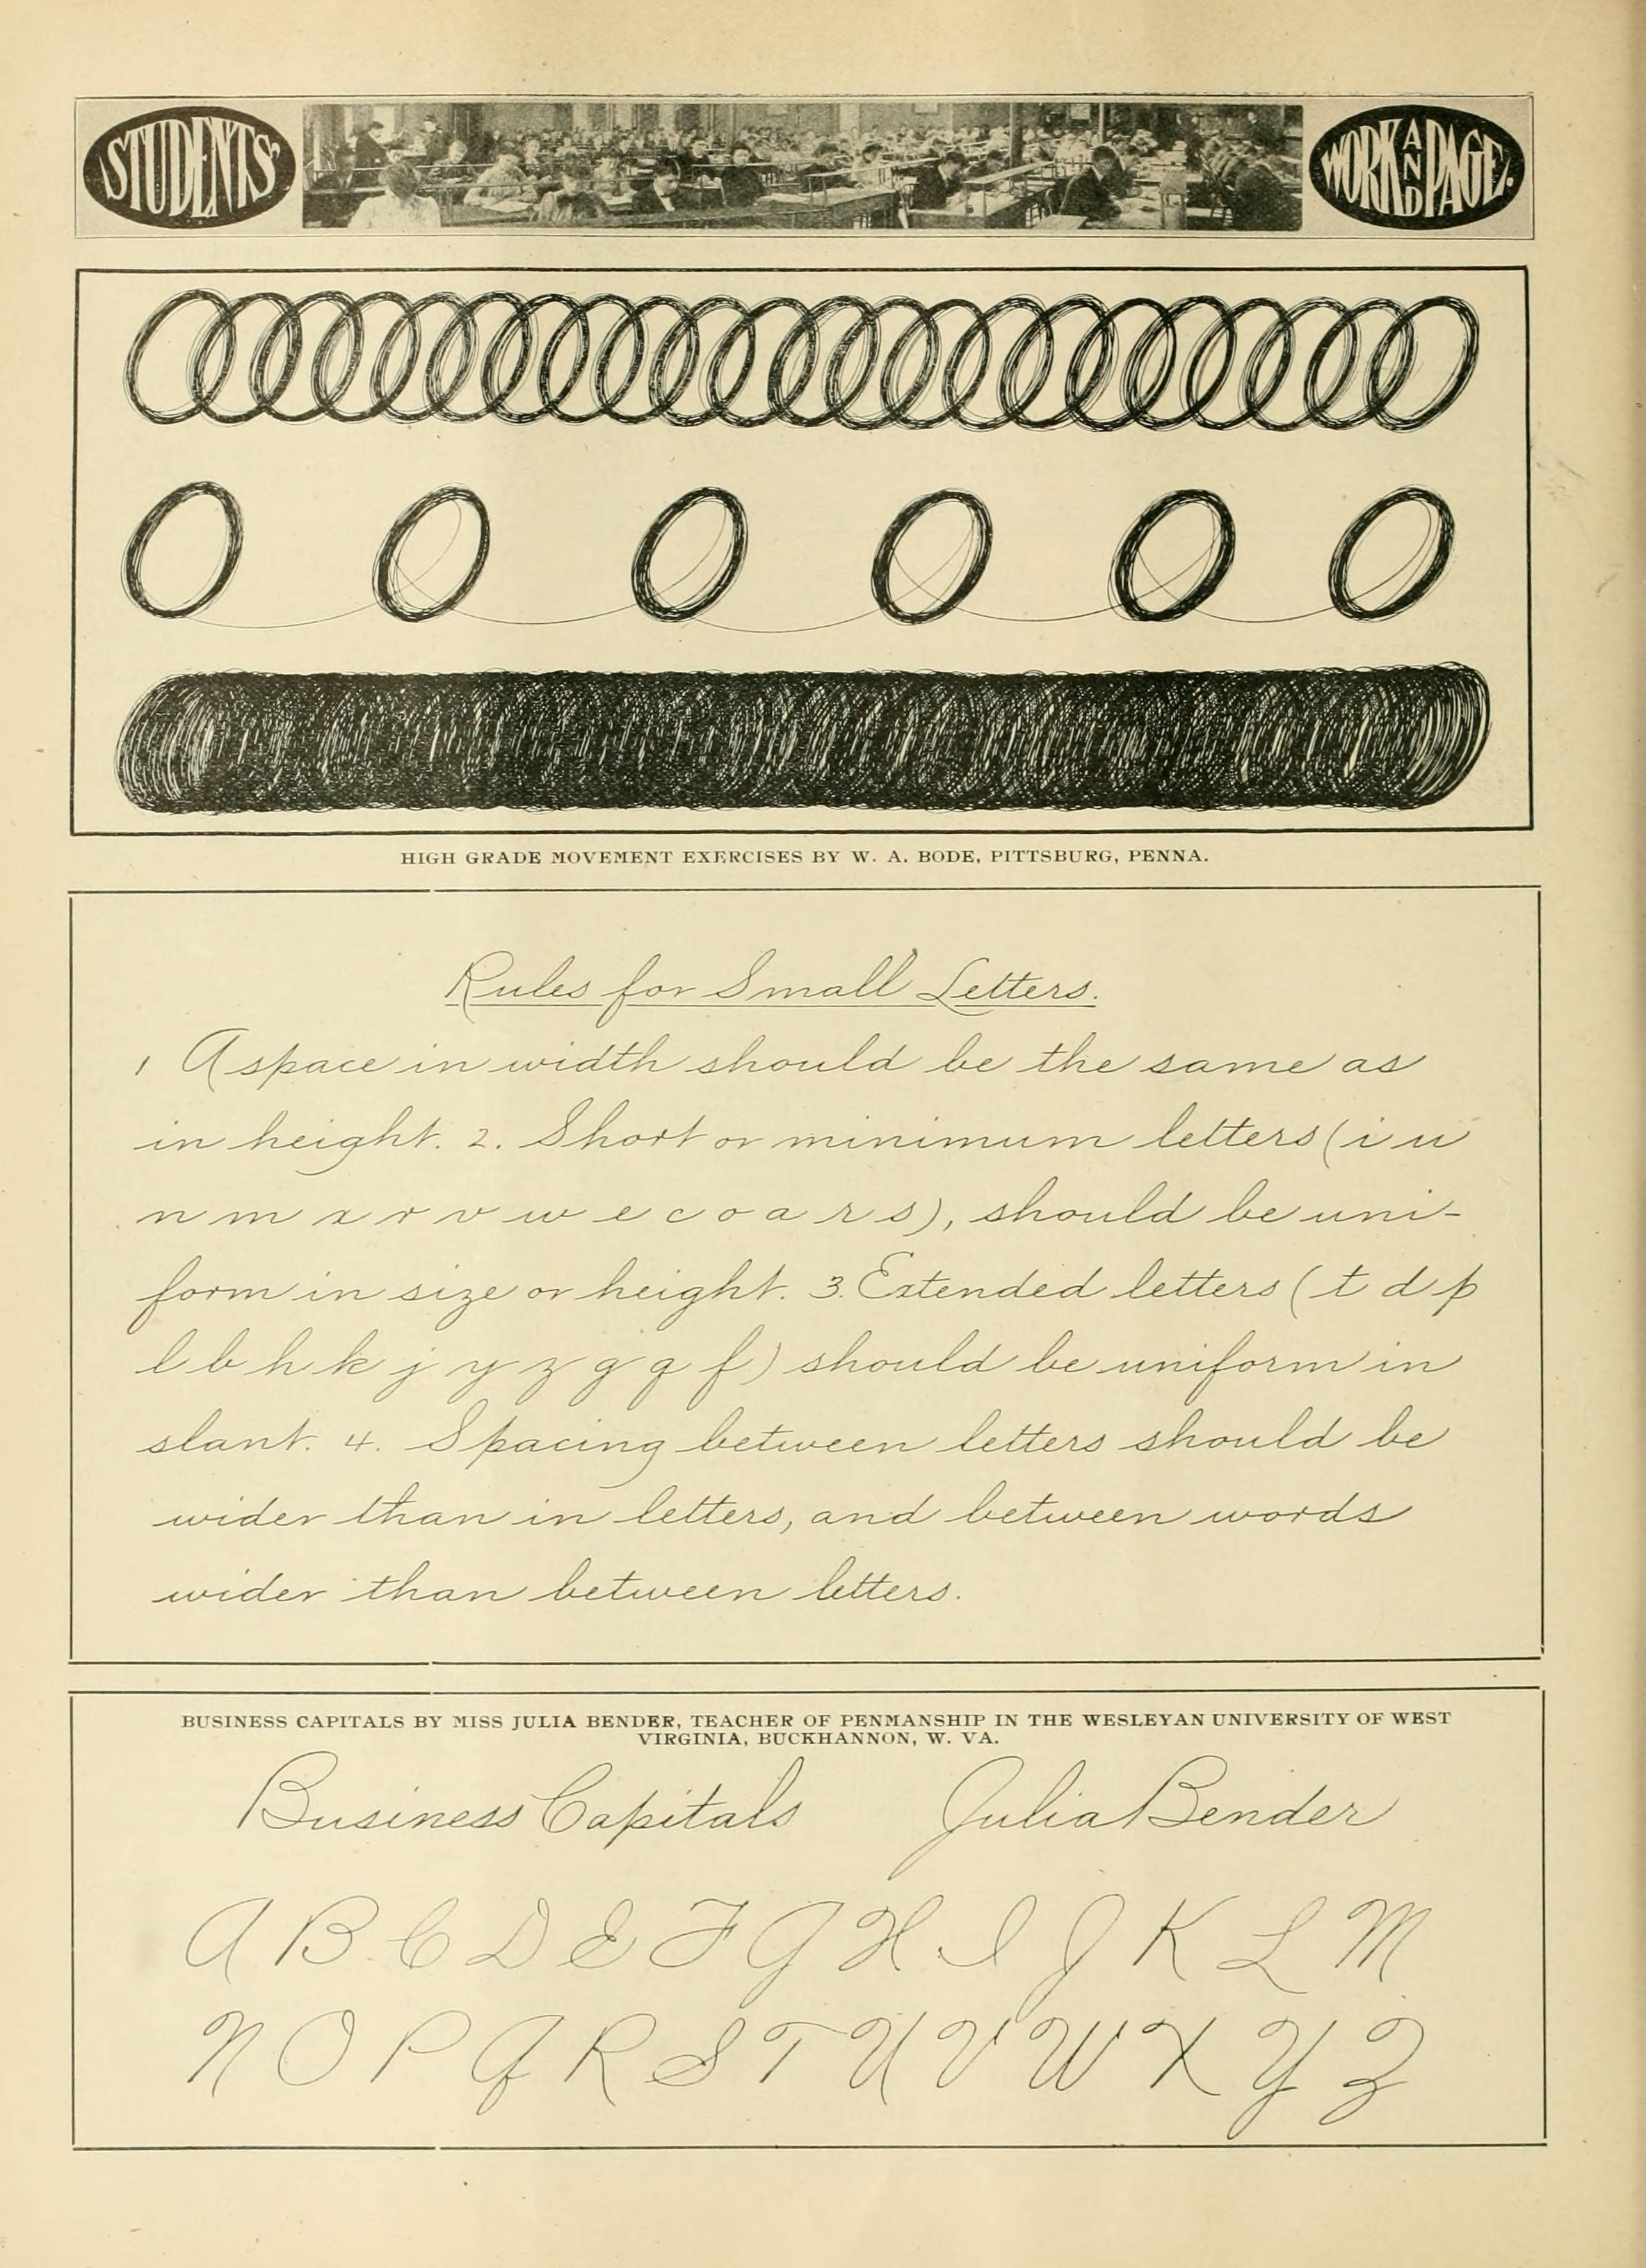 STUDENTS'
WORK AND PAGE.
HIGH GRADE MOVEMENT EXERCISES BY W. A. BODE, PITTSBURG, PENNA.
Rules for Small Letters.
1 A space in width should be the same as
in height. 2. Short or minimum letters (i u
n m x r v w e c o a r s), should be uni-
form in size or height. 3. Extended letters (t d p
l b h k j y z g q f) should be uniform in
slant. 4. Spacing between letters should be
wider than in letters, and between words
wider than between letters.
BUSINESS CAPITALS BY MISS JULIA BENDER, TEACHER OF PENMANSHIP IN THE WESLEYAN UNIVERSITY OF WEST
VIRGINIA, BUCKHANNON, W. VA.
Business Capitals Julia Bender
A B C D E F G H I J K L M
N O P Q R S T U V W X Y Z